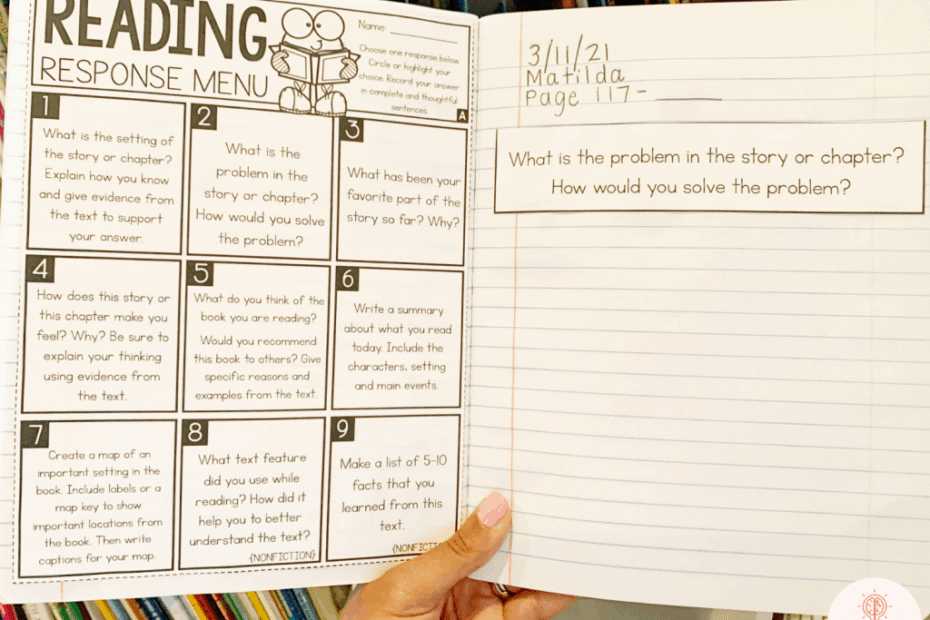 READING
RESPONSE MENU
Name:
Choose one response below.
Circle or highlight your
choice. Record your answer
in complete and thoughtful
sentences.
A
1
What is the setting of
the story or chapter?
Explain how you know
and give evidence from
the text to support
your answer.
2
What is the
problem in the
story or chapter?
How would you solve
the problem?
3
What has been your
favorite part of the
story so far? Why?
4
How does this story or
this chapter make you
feel? Why? Be sure to
explain your thinking
using evidence from
the text.
5
What do you think of the
book you are reading?
Would you recommend
this book to others? Give
specific reasons and
examples from the text.
6
Write a summary
about what you read
today. Include the
characters, setting
and main events.
7
Create a map of an
important setting in the
book. Include labels or a
map key to show
important locations from
the book. Then write
captions for your map.
8
What text feature
did you use while
reading? How did it
help you to better
understand the text?
{NONFICTION}
9
Make a list of 5-10
facts that you
learned from this
text.
{NONFICTI
3/11/21
Matilda
Page 117-
What is the problem in the story or chapter?
How would you solve the problem?